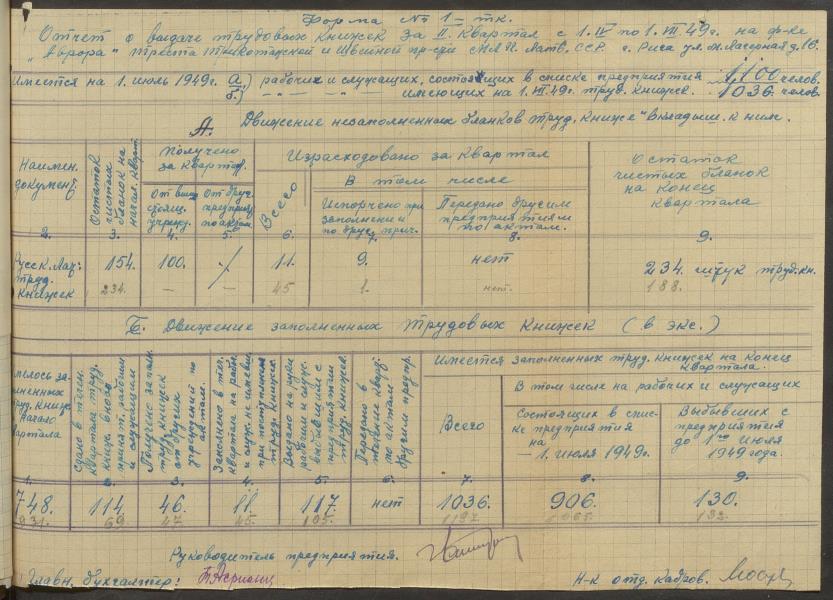 Форма № 1 - тк.
Отчет о выдаче трудовых книжек за II. квартал с 1. IV по 1. VII. 49 г. на ф-ке
"Аврора" треста трикотажной и швейной пр-сти МЛП. Латв. ССР. г. Рига ул.
Имеется на 1. июль 1949 г. а) рабочих и служащих, состоящих в списке предприятия 1,100 челов.
б) — — — имеющих на 1. VII. 49 г. труд. книжек. 1036. челов.
А. Движение незаполненных бланков труд. книжек и вкладыш. к ним.
Наимен. документ.
Остаток чистых бланок на начал. кварт.
Получено за квартал.
От выш. стоящ. учрежд.
От друг. предприят. по актам
Израсходовано за квартал
Всего
В том числе
Испорчено при заполнении и по друг. прич.
Передано другим предприятиям по актам.
Остаток чистых бланок на конец квартала
2. 3. 4. 5. 6. 7. 8. 9.
Русск. Лат. труд. книжек
154. 100. 11. 9. нет 234. штук труд. кн.
234. — — 45 1. нет. 188.
Б. Движение заполненных трудовых книжек (в экс.)
Имелось заполненных труд. книжек начало квартала
Сдано в течен. квартала труд. книж. вновь принят. рабочими и служащими
Получено заполн. труд. книжек от других учреждений по актам.
Заполнено в теч. квартала на рабоч. и служ. не имевш. при поступлении труд. книжек
Выдано на руки рабочим и служ. выбывшим с предприятия труд. книжек.
Передано в течение кварт. по актам другим предпр.
Имеется заполненных труд. книжек на конец квартала.
Всего
В том числе на рабочих и служащих
Состоящих в списке предприятия на — 1. июля 1949 г.
Выбывших с предприятия до 1го июля 1949 года.
1. 2. 3. 4. 5. 6. 7. 8. 9.
748. 114. 46. 11. 117. нет 1036. 906. 130.
931. 69. 47 45. 105. 1197. 1065. 132.
Руководитель предприятия.
Главн. бухгалтер:
Н-к отд. кадров.